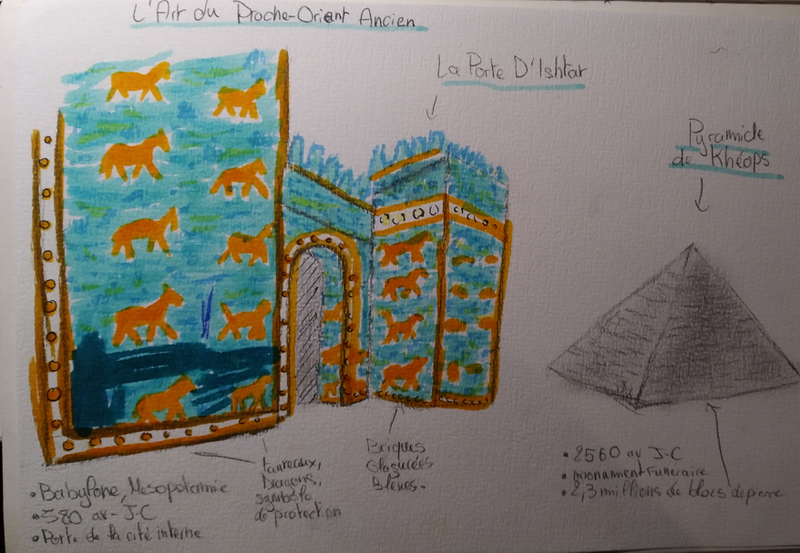 L'Art du Proche-Orient Ancien
La Porte D'Ishtar
Pyramide
de Khéops
• Babylone, Mesopotamie
• 580 av-J-C
• Porte de la cité interne
taureaux,
Dragons,
symbole
de protection
Briques
Glaçurées
Bleues.
• 2560 av J-C
• monument funeraire
• 2,3 millions de blocs de pierre